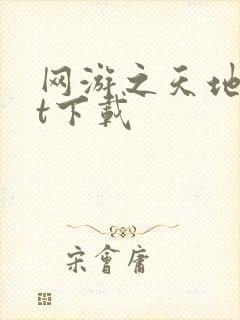 网游之天地
t下载
宋會庸